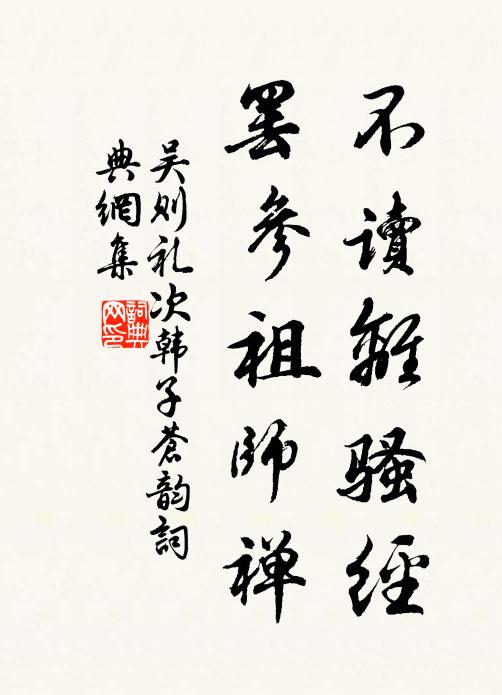 不讀離騷經
罷參祖師禅
吴则礼次韩子蒼韵詞
典網集
詞典
网印